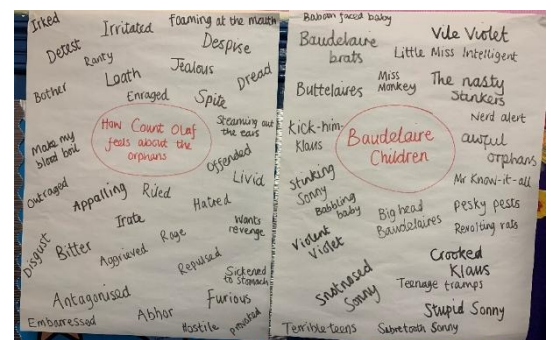 Irked
Irritated
foaming at the mouth
Detest
Ranty
Despise
Loath
Jealous
Dread
Bother
Enraged
Spite
How Count Olaf
feels about the
orphans
Steaming out
the ears
Make my
blood boil
Offended
Livid
Outraged
Appalling
Riled
Hatred
Irate
Wants
revenge
Disgust
Bitter
Aggrieved
Rage
Repulsed
Sickened
to stomach
Antagonised
Furious
Embarressed
Abhor
Hostile
provoked
Baboon faced baby
Baudelaire
brats
Vile Violet
Little Miss Intelligent
Buttelaires
Miss
Monkey
The nasty
Stankers
Nerd alert
Kick-him-
Klaus
Baudelaire
Children
awful
orphans
Stinking
Sonny
Mr Know-it-all
Babbling
baby
Big head
Baudelaires
Pesky pests
Violent
Violet
Revolting rats
Crooked
Klaus
Snotnosed
Sonny
Teenage tramps
Stupid Sonny
Terrible teens
Sabretooth Sonny